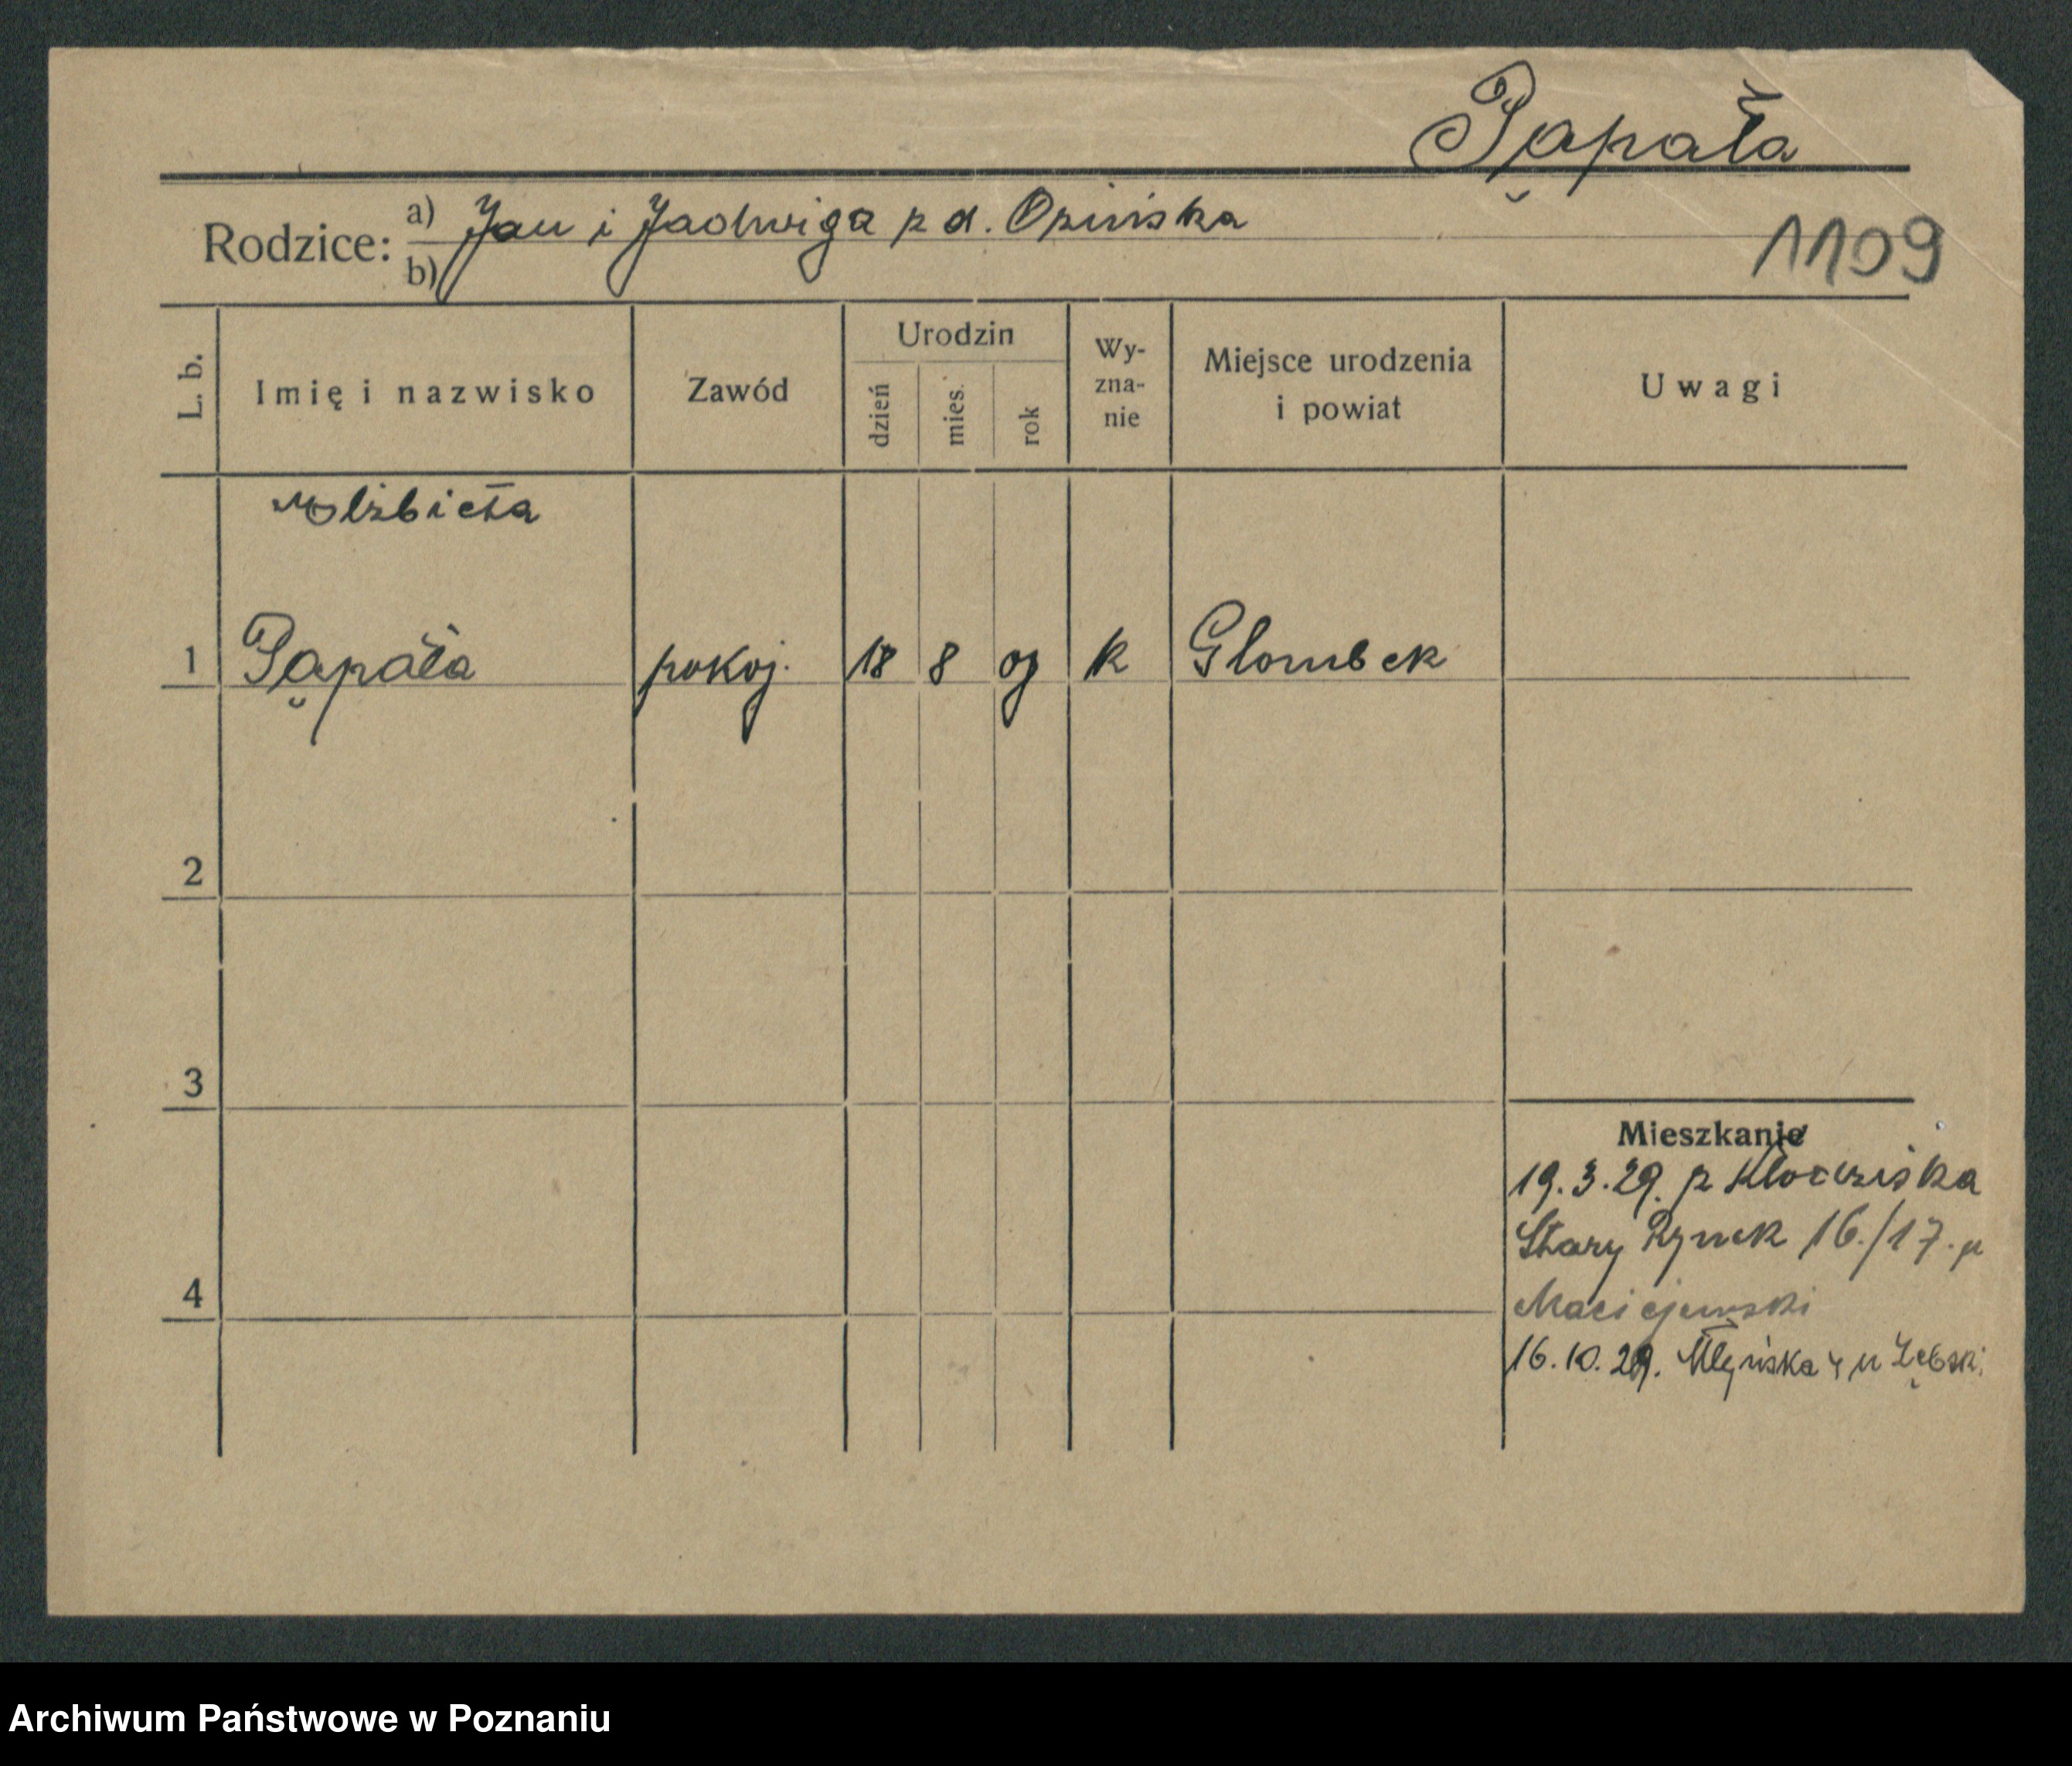 Pąpała
Rodzice: a) Jan i Jadwiga z d. Opińska
b)
1109
L. b.
Imię i nazwisko
Zawód
Urodzin
dzień
mies.
rok
Wy-
zna-
nie
Miejsce urodzenia
i powiat
Uwagi
Elżbieta
1 Pąpała pokoj. 18 8 09 k Glombek
2
3
4
Mieszkanie
19.3.29. p
Stary Rynek 16./17. u
Maciejewski
16.10.29. Młyńska 4 u Zębski
Archiwum Państwowe w Poznaniu